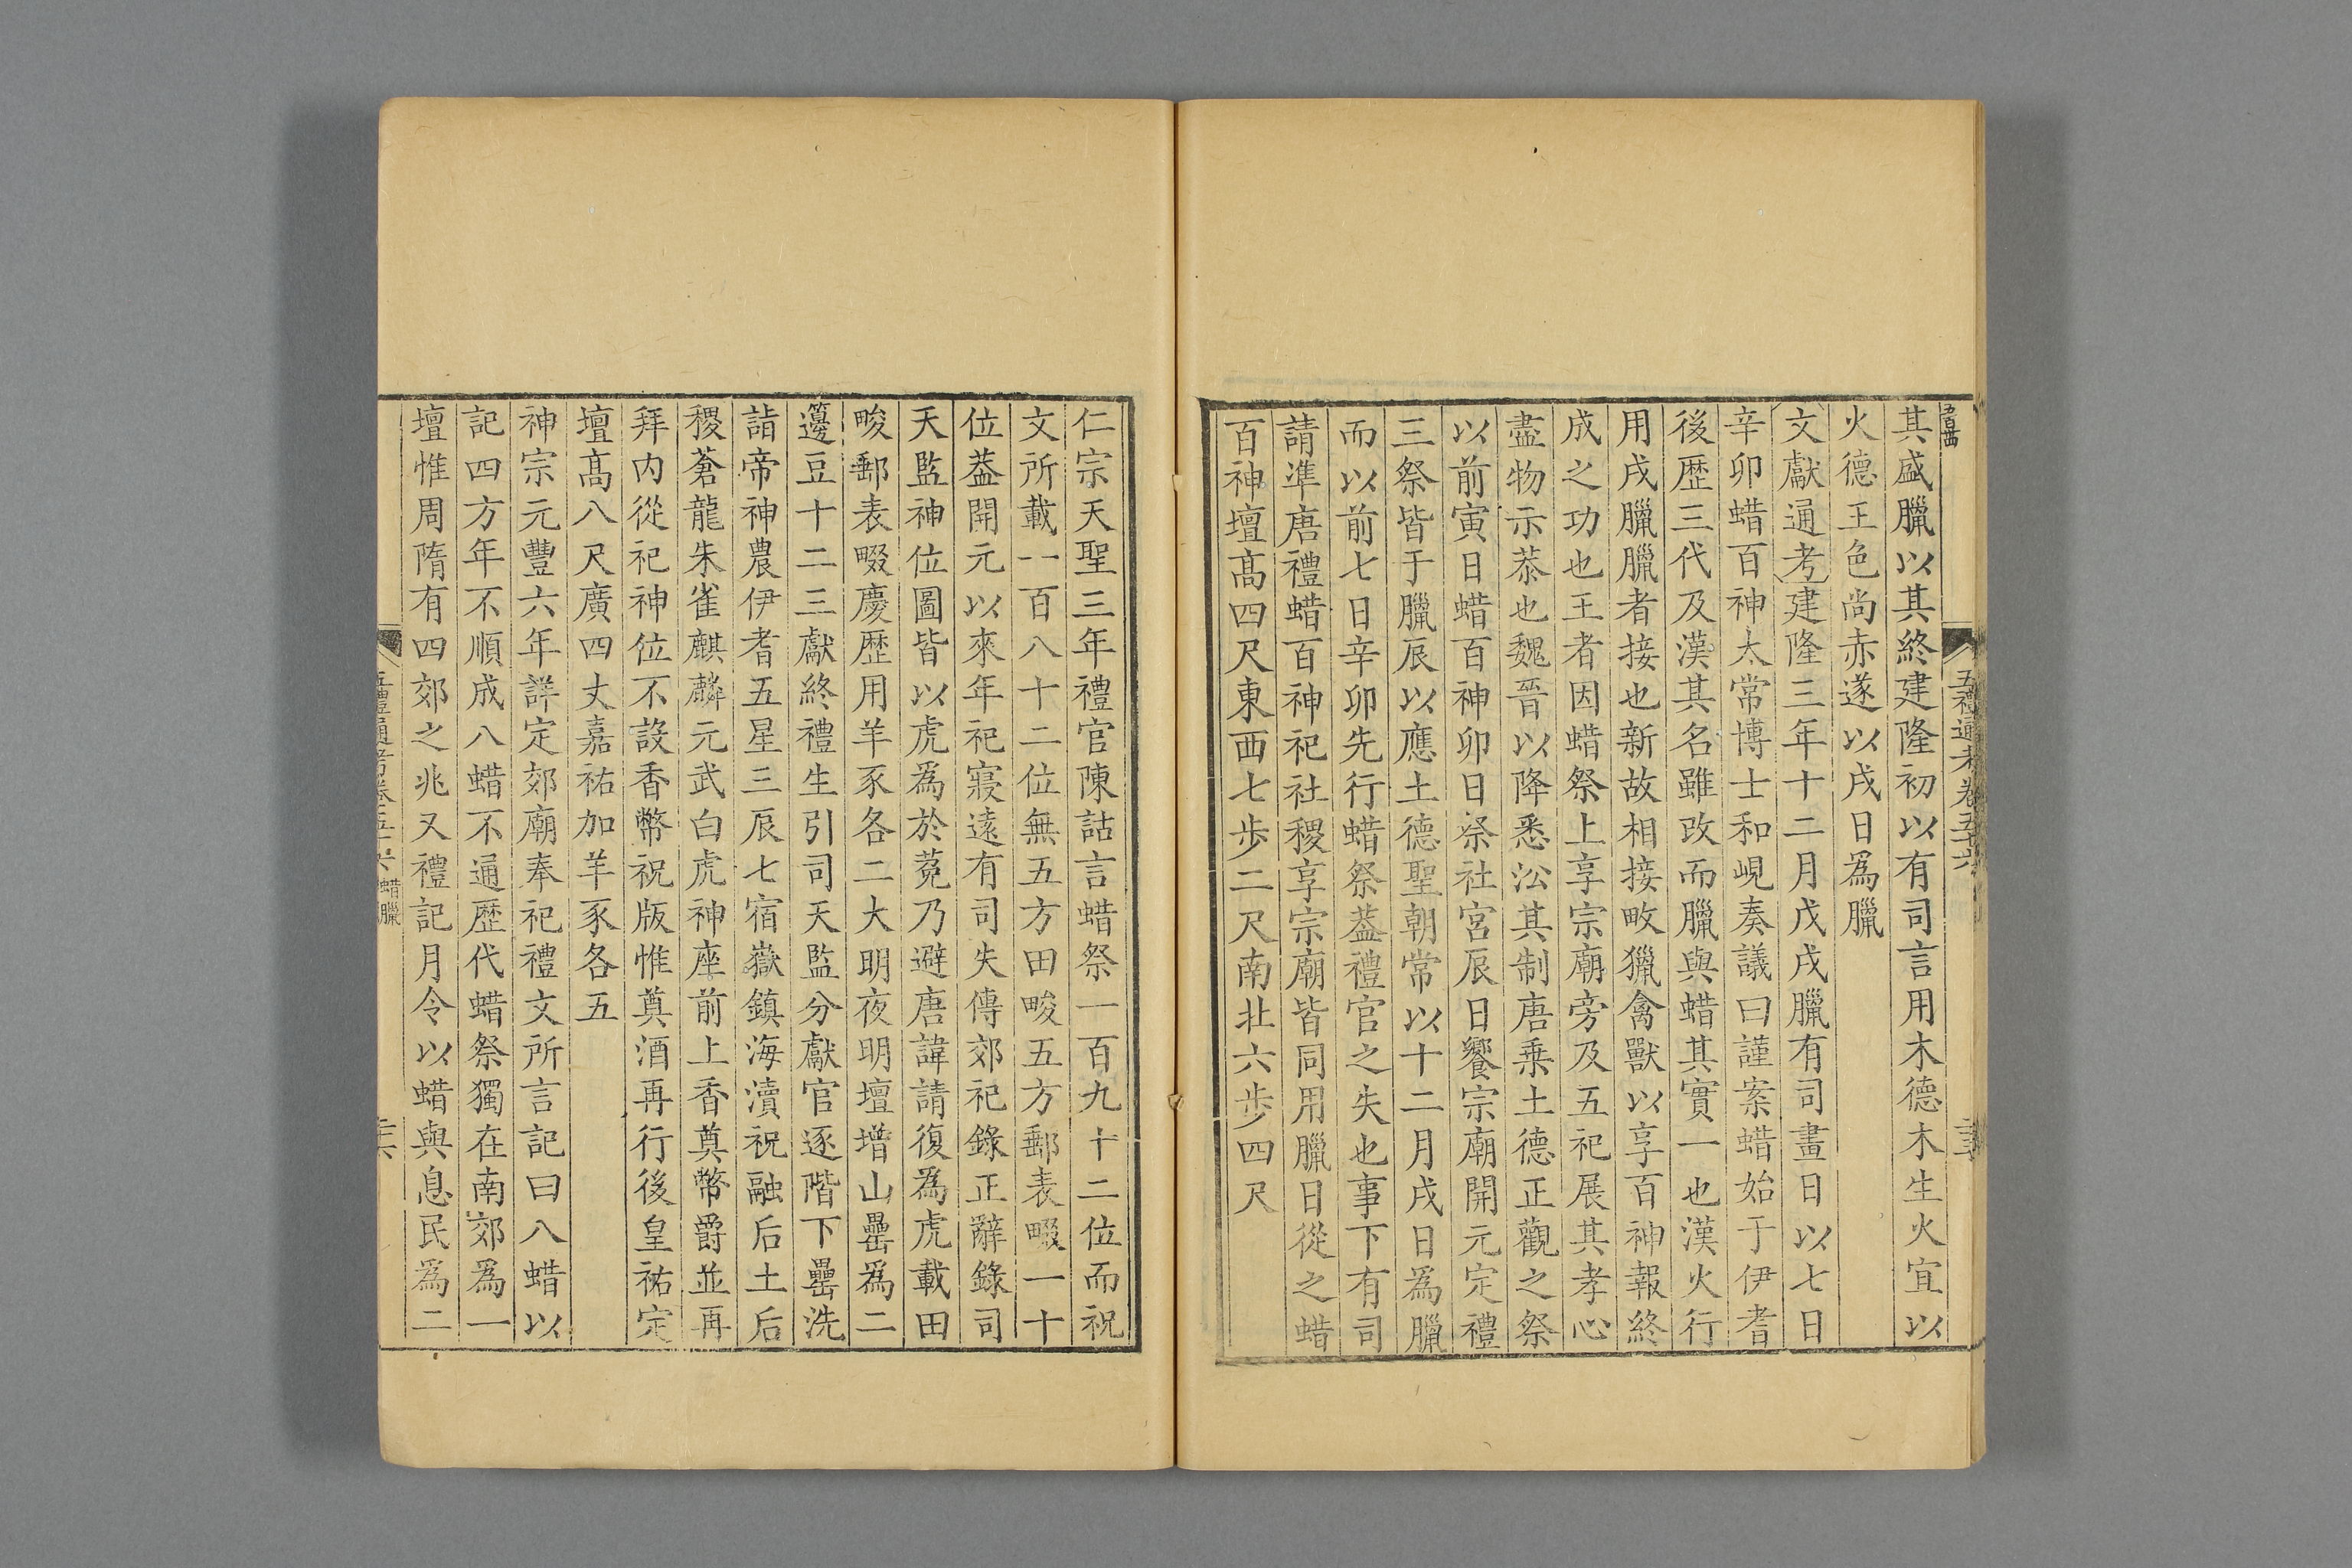 其盛臘以其終建隆初以有司言用木德木生火宜以
火德王色尚赤遂以戌日爲臘
文獻通考建隆三年十二月戊戌臘有司畫日以七日
辛卯蜡百神太常博士和峴奏議曰謹案蜡始于伊耆
後歴三代及漢其名雖改而臘與蜡其實一也漢火行
用戌臘臘者接也新故相接畋獵禽獸以享百神報終
成之功也王者因蜡祭上享宗廟旁及五祀展其孝心
盡物示恭也魏晉以降悉㳂其制唐乗土德正觀之祭
以前寅日蜡百神卯日祭社宮辰日饗宗廟開元定禮
三祭皆于臘辰以應土德聖朝常以十二月戌日爲臘
而以前七日辛卯先行蜡祭葢禮官之失也事下有司
請準唐禮蜡百神祀社稷享宗廟皆同用臘日從之蜡
百神壇高四尺東西七步二尺南北六步四尺
仁宗天聖三年禮官陳詁言蜡祭一百九十二位而祝
文所載一百八十二位無五方田畯五方郵表畷一十
位葢開元以來年祀寢遠有司失傳郊祀錄正辭錄司
天監神位圖皆以虎爲於菟乃避唐諱請復爲虎載田
畯郵表畷慶歴用羊豕各二大明夜明壇增山罍爲二
籩豆十二三獻終禮生引司天監分獻官逐階下罍洗
詣帝神農伊耆五星三辰七宿嶽鎮海瀆祝融后土后
稷蒼龍朱雀麒麟元武白虎神座前上香奠幣爵並再
拜内從祀神位不設香幣祝版惟奠酒再行後皇祐定
壇高八尺廣四丈嘉祐加羊豕各五
神宗元豐六年詳定郊廟奉祀禮文所言記曰八蜡以
記四方年不順成八蜡不通歴代蜡祭獨在南郊爲一
壇惟周隋有四郊之兆又禮記月令以蜡與息民爲二